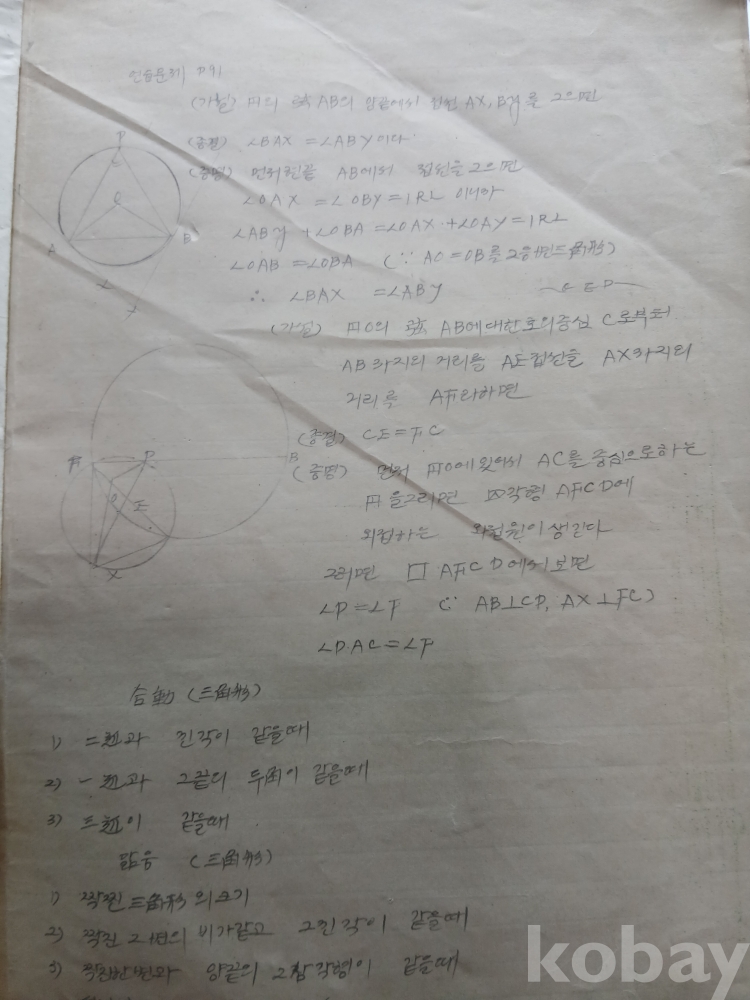 연습문제 P91
(가설) 円의 弦 AB의 양끝에서 접선 AX, By를 그으면
(종결) ∠BAX = ∠ABY이다
(증명) 먼저 AB에서 을 그으면
∠OAX = ∠OBY = 1R∠ 이니까
∠ABy + ∠OBA = ∠OAX + ∠OAY = 1R∠
∠OAB = ∠OBA (∵ AO = OB를 2 三角形)
∴ ∠BAX = ∠ABY Q E D
(가설) 円O의 弦 AB에 대한 호의 중심 C로부터
AB까지의 거리를 접선을 AX까지의
거리를 AF라하면
(종결) CE = FC
(증명) 먼저 円O에 있어서 AC를 중심으로하는
円을 그리면 四각형 AFCD에
외접하는 외접원이 생긴다
그러면 □ AFCD에서 보면
∠D = ∠F (∵ AB⊥CD, AX⊥FC)
∠DAC = ∠F
合動 (三角形)
1) 二변과 낀각이 같을때
2) 一변과 그끝의 두角이 같을때
3) 三변이 같을때
닮음 (三角形)
1) 三角形의 크기
2) 짝진 2변의 비가같고 그낀각이 같을때
3) 양끝의 같을때
A
B
P
O
X
A
D
B
E
X
kobay